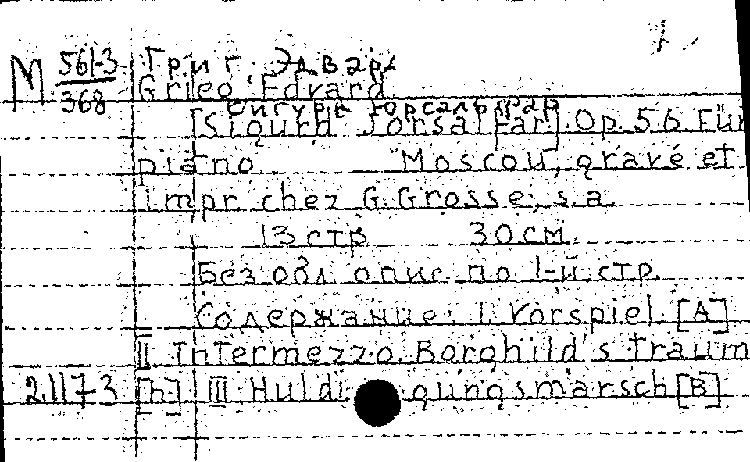 M 561-3 Григ, Эдвард
368 Grieg Edvard
Сигурд Юрсальфар
[Sigurd Jorsalfar]. Op. 56. Für
piano. Moscou, gravé et
impr. chez G. Grosse, s.a.
13 стр. 30 см.
Без обл. опис. по 1-й стр.
Содержание: I. Vorspiel. [A]
II. Intermezzo. Borghild's Traum
2.117-3 [h] III. Huldigungsmarsch [B]